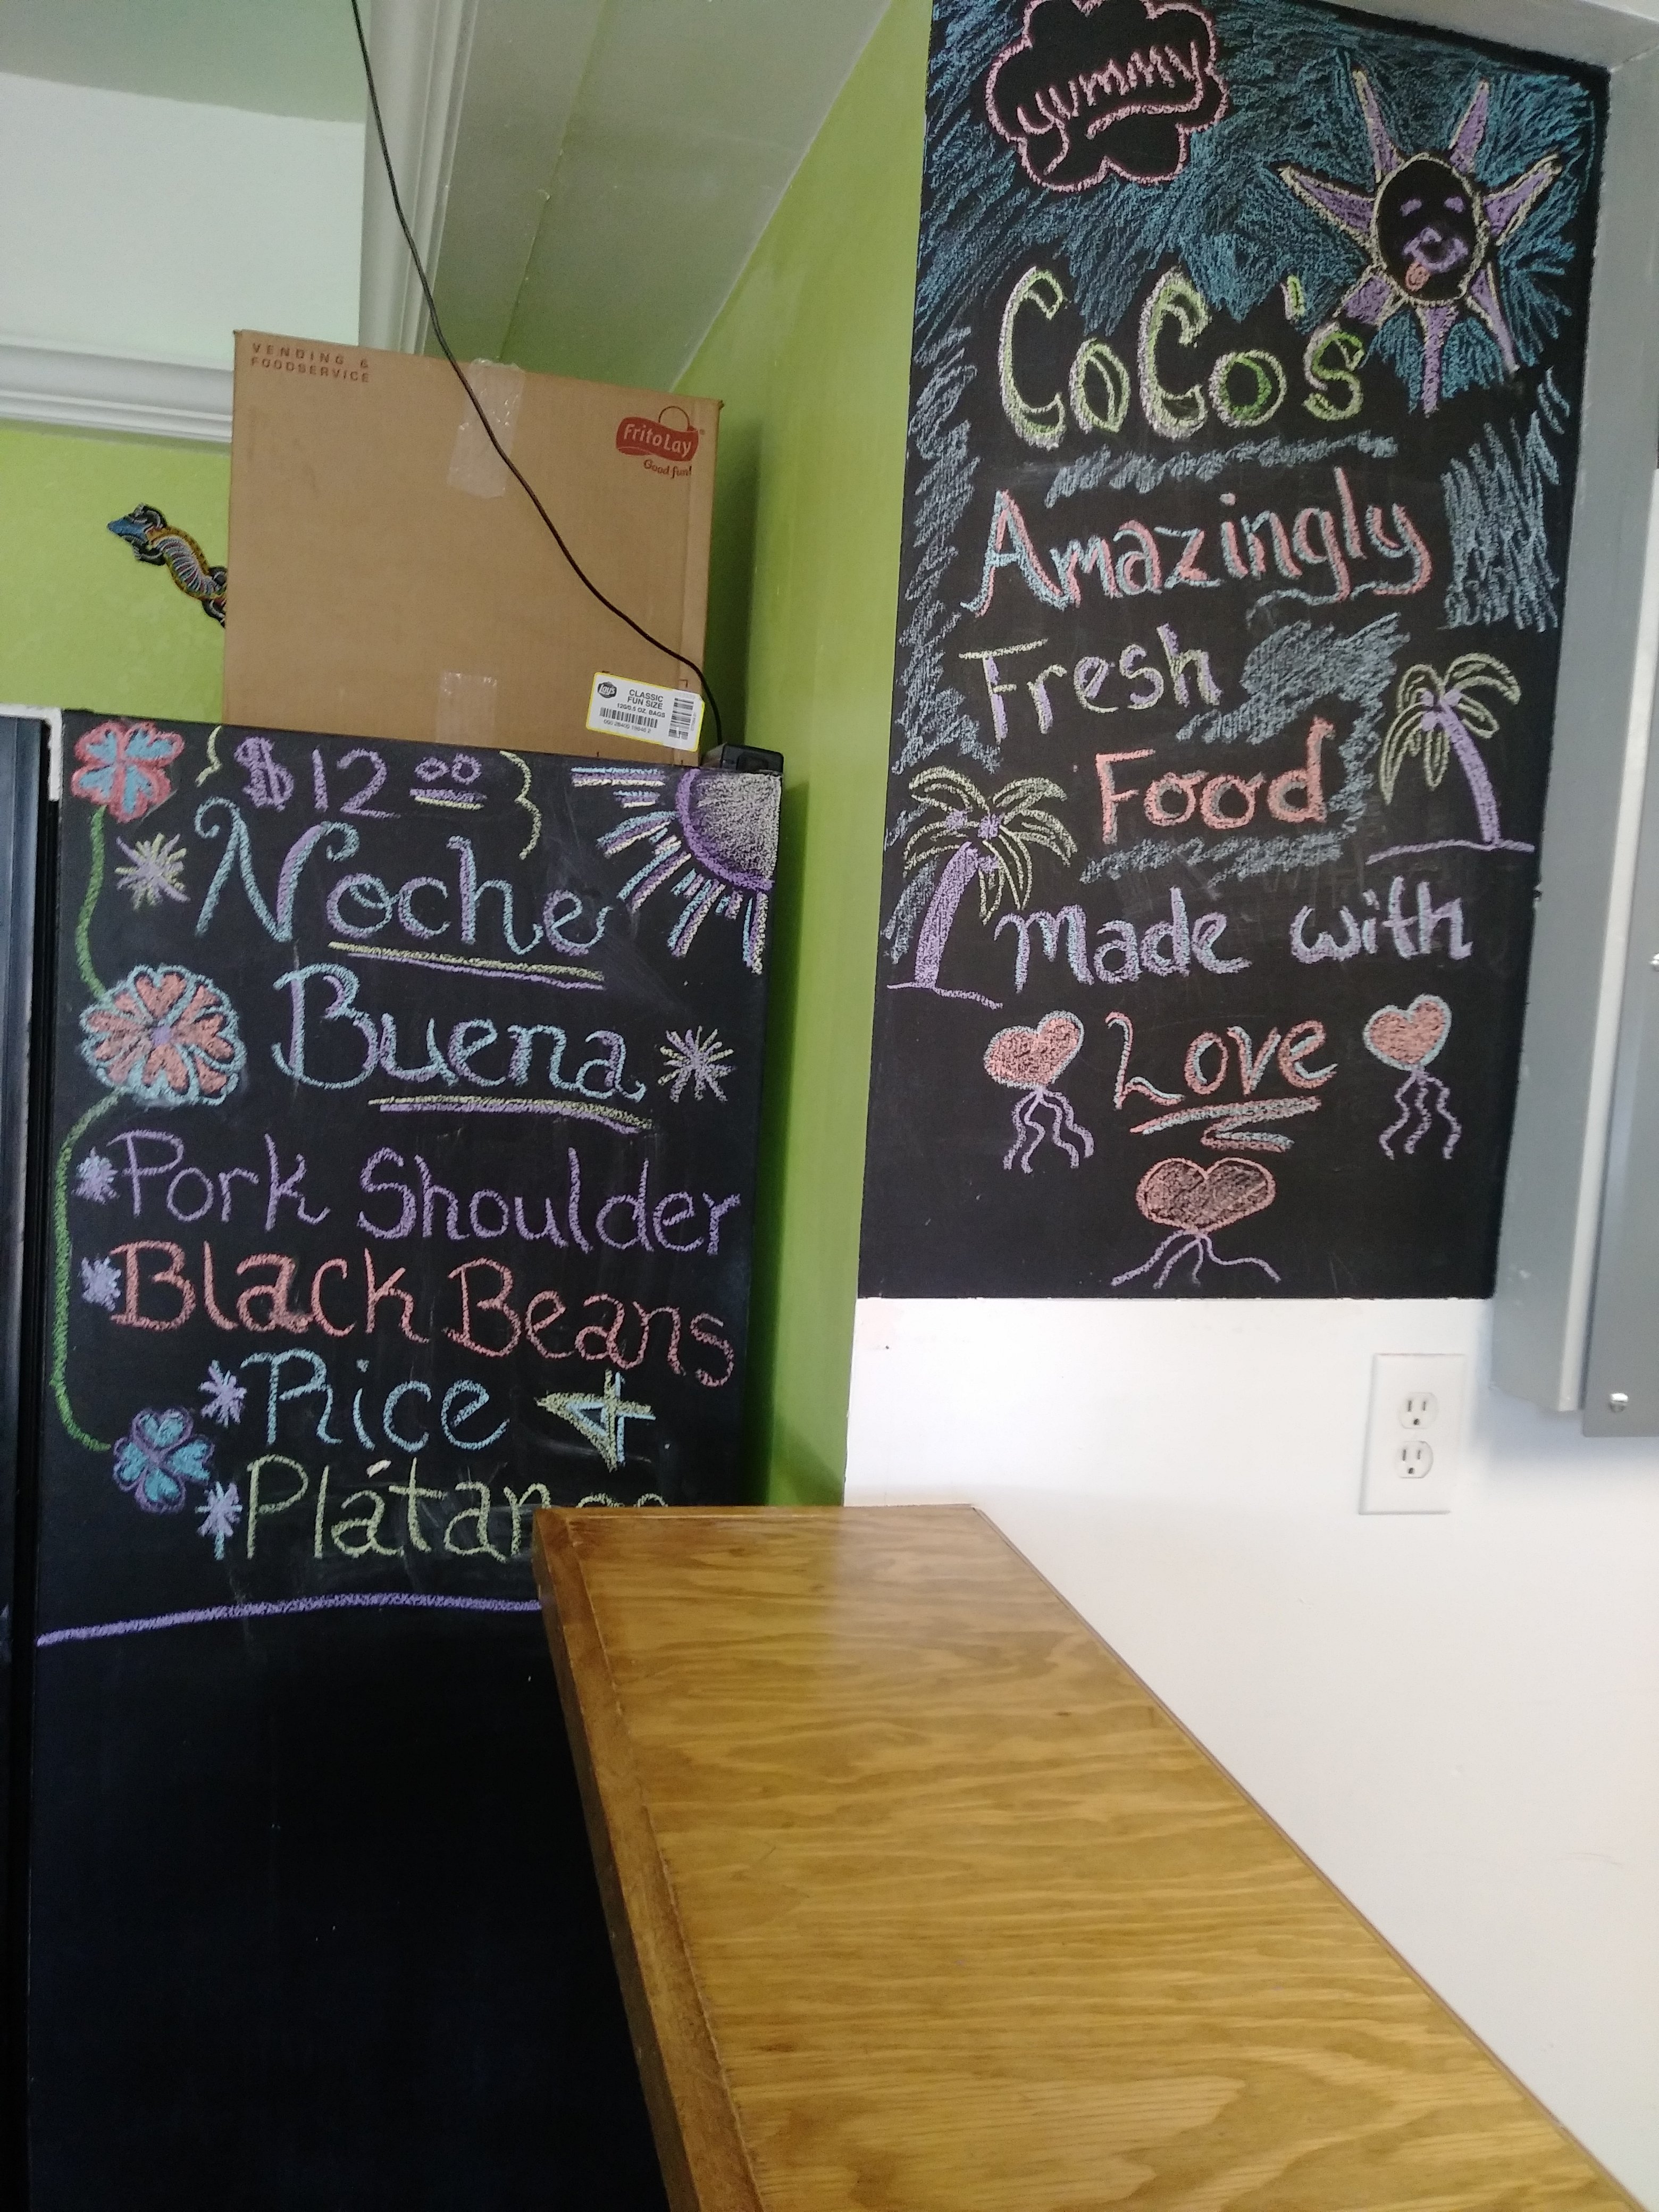 yummy
CoCo's
Amazingly
Fresh
Food
Made with
Love
VENDING &
FOODSERVICE
FritoLay
Good fun!
Lay's
CLASSIC
FUN SIZE
120/0.5 OZ. BAGS
$12.00
Noche
Buena
Pork Shoulder
Black Beans
Rice
Plátanos